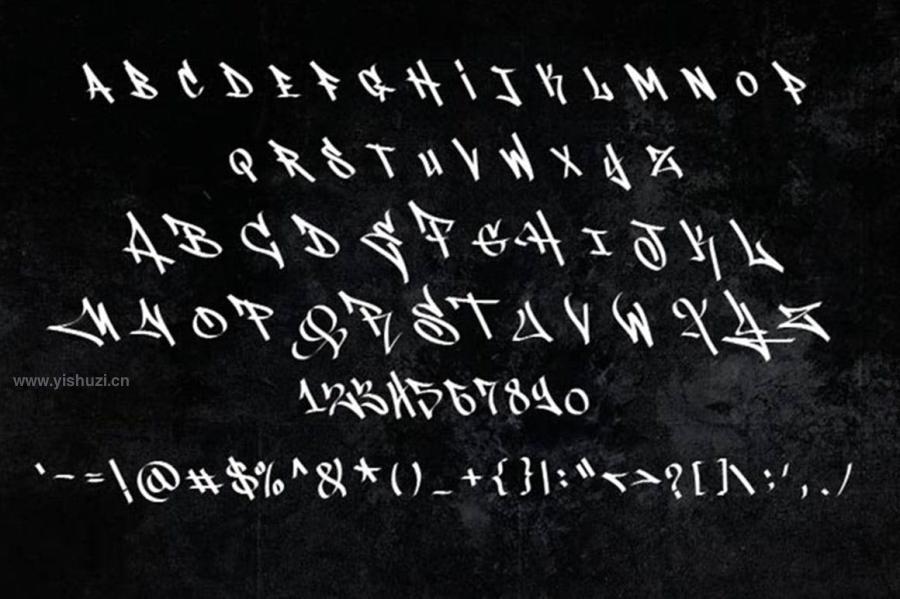 A B C D E F G H i J K L M N O P
Q R S T u V W X y Z
A B C D E F G H I J K L
M N O P Q R S T U V W X Y Z
www.yishuzi.cn
1234567890
`-=!@#$%^&*()_+{}|:"<>?[]\;',./